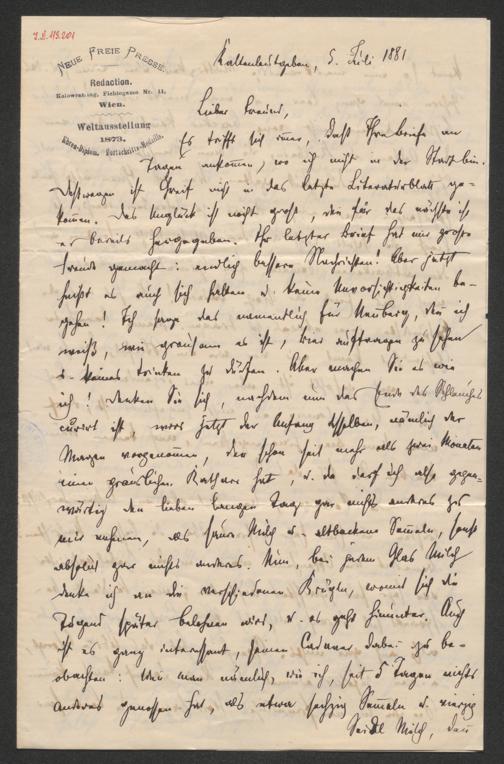 NEUE FREIE PRESSE.
Redaction.
Kolowratring, Fichtegasse Nr. 11,
Wien.
Weltausstellung
1873.
Ehren-Diplom. Fortschritts-Medaille.
Kaltenleutgeben, 5. Juli 1881
Lieber Freund,
Es trifft sich immer, daß Ihre Briefe an
Tagen ankommen, wo ich nicht in der Stadt bin.
Deßwegen ist Greif nicht in das letzte Literaturblatt ge-
kommen. Das Unglück ist nicht groß, denn für das nächste ist
er bereits hergegeben. Ihr letzter Brief hat mir große
Freude gemacht: endlich bessere Nachrichten! Aber jetzt
heißt es auch sich halten u. keine Unvorsichtigkeiten be-
gehen! Ich sage das namentlich für Neuberg, denn ich
weiß, wie grausam es ist, Bier auftragen zu sehen
u. keines trinken zu dürfen. Aber machen Sie es wie
ich! Denken Sie sich, nachdem nun das Ende des Schlauches
curirt ist, wird jetzt der Anfang desselben, nämlich der
Magen vorgenommen, der schon seit mehr als zwei Monaten
einen gräulichen Katharr hat, u. da darf ich also gegen-
wärtig den lieben langen Tag gar nichts anderes zu
mir nehmen, als saure Milch u. altbackene Semmeln, sonst
absolut gar nichts anderes. Nun, bei jedem Glas Milch
denke ich an die verschiedenen Krügln, womit sich die
Tugend später belohnen wird, u. es geht hinunter. Auch
ist es ganz interessant, seinen Cadaver dabei zu be-
obachten: Wenn man nämlich, wie ich, seit 5 Tagen nichts
anderes genossen hat, als etwa sechzig Semmeln u. vierzig
Seidel Milch, dann